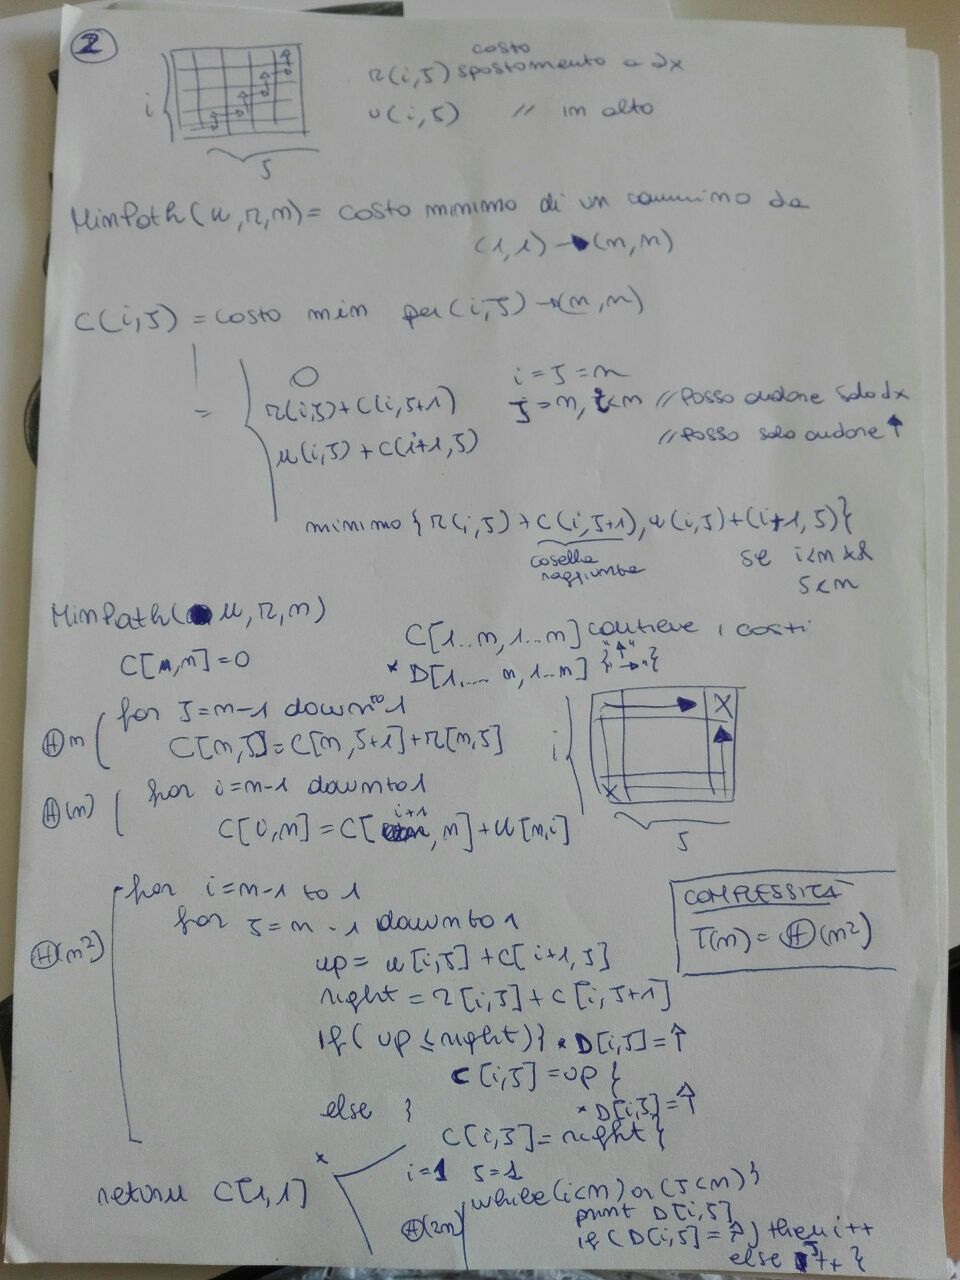 2
costo
r(i,j) spostamento a dx
u(i,j) // in alto
i
j
MinPath(u,r,n) = costo minimo di un cammino da
(1,1) → (n,n)
C(i,j) = costo min per (i,j) → (n,n)
= 0 i = j = n
r(i,j) + C(i,j+1) j = n, i<n // posso andare solo dx
u(i,j) + C(i+1,j) // posso solo andare ↑
minimo { r(i,j) + C(i,j+1), u(i,j) + (i+1,j) }
casella raggiunta
se i<n &&
j<n
MinPath( u,r,n)
C[1..n,1..n] contiene i costi
C[n,n]=0
* D[1....n,1..n] {"↑" "→"}
for j=n-1 downto 1
Θ n
C[n,j]=C[n,j+1]+r[n,j]
for i=n-1 downto 1
Θ(n)
C[i,n]=C[i+1,n]+u[n,i]
i
X
X
j
for i=n-1 to 1
for j=n-1 downto 1
Θ(n²)
up= u[i,j]+C[i+1,j]
right= r[i,j]+C[i,j+1]
if( up ≤ right){ * D[i,j]=↑
C[i,j]=up }
else {
* D[i,j]=↑
C[i,j]=right }
COMPLESSITÀ
T(n)= Θ(n²)
*
return C[1,1]
i=1 j=1
Θ(2n)
while(i<n) or (j<n){
print D[i,j]
if (D[i,j]=↑) then i++
else j++ }